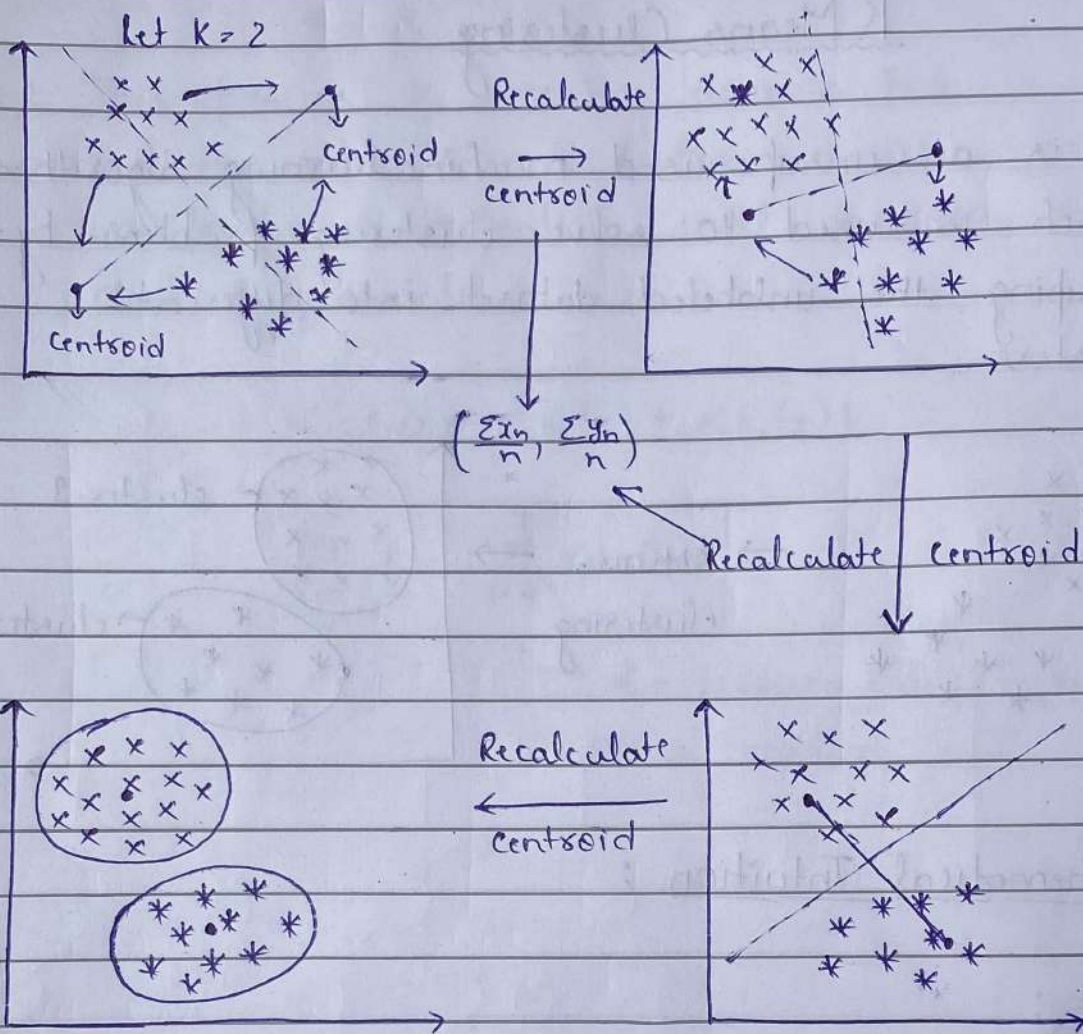 Let K = 2
centroid
centroid
Recalculate
centroid
(Σxn/n, Σyn/n)
Recalculate centroid
Recalculate
centroid